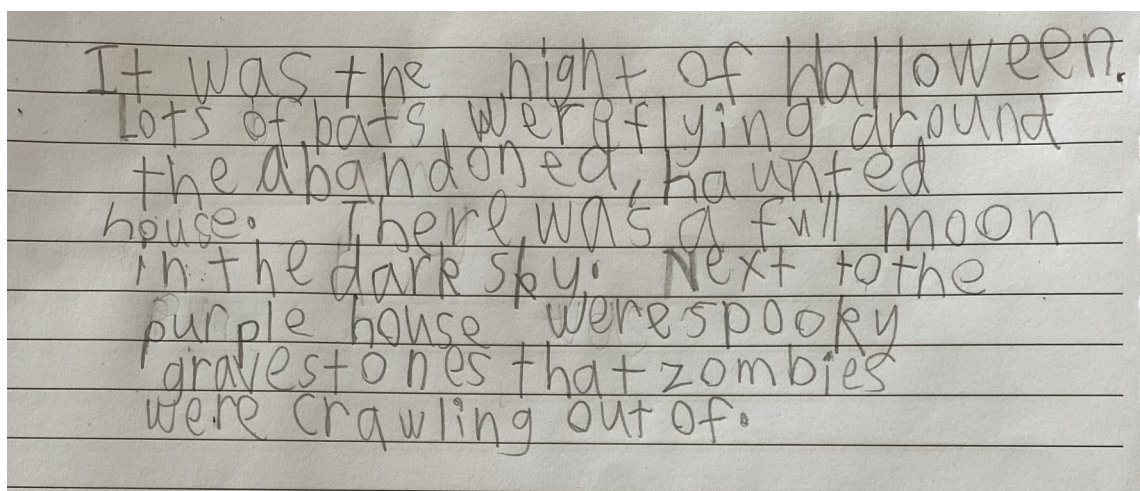 It was the night of Halloween.
Lots of bats were flying around
the abandoned, haunted
house. There was a full moon
in the dark sky. Next to the
purple house were spooky
gravestones that zombies
were crawling out of.